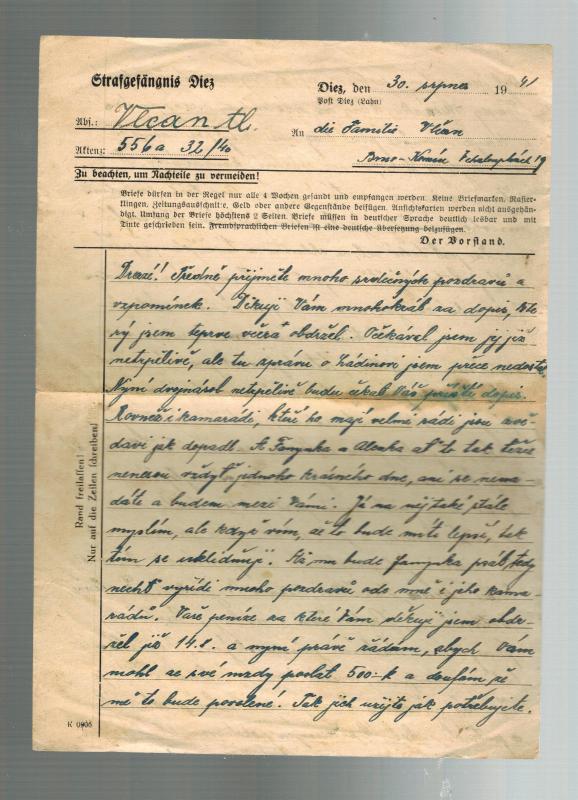 Strafgefängnis Diez
Diez, den 30. srpna 1941
Post Diez (Lahn)
Abs.: Vlčan
An die Familie Vlčan
Aktenz: 556a 32/40
Brno-Komín
Zu beachten, um Nachteile zu vermeiden!
Briefe dürfen in der Regel nur alle 4 Wochen gesandt und empfangen werden. Keine Briefmarken, Rasier-
klingen, Zeitungsausschnitte, Geld oder andere Gegenstände beifügen. Ansichtskarten werden nicht ausgehän-
digt. Umfang der Briefe höchstens 2 Seiten. Briefe müssen in deutscher Sprache deutlich lesbar und mit
Tinte geschrieben sein. Fremdsprachlichen Briefen ist eine deutsche Übersetzung beizufügen.
Der Vorstand.
Drazí! Předně přijměte mnoho srdečných pozdravů a
vzpomínek. Děkuji Vám mnohokráb za dopis, kte
rý jsem teprve včéra obdržel. Očekával jsem jej již
netrpělivě, ale tu zprávu o jsem přece nedostal.
Nyní dvojnásob netrpělivě budu čekab Váš příští dopis.
Rovněž i kamarádi, kteří ho mají velmi rádi jsou zvě-
daví jak dopadl. A Fanynka a Alenka ať to tak těžce
nenesou vždyť jednoho krásného dne, ani se nena-
dáte a budem mezi Vámi. Já na něj také stále
myslím, ale když vím, až to bude míti lepší, tak
tím se uklidňuji. Až mu bude Fanynka psáb, tedy
nechť vyřídí mnoho pozdravů ode mně i jeho kama-
rádů. Vaše peníze za které Vám děkuji jsem obdr-
žel již 14.8. a nyní právě žádám, abych Vám
mohl ze své mzdy poslat 500:-k a doufám, že
mě to bude povolené. Tak jich užijte jak potřebujete.
Rand freilassen!
Nur auf die Zeilen schreiben!
K 0906